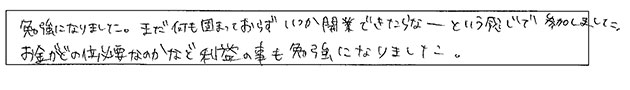 勉強になりました。まだ何も固まっておらず いつか開業できたらなーという感じで 参加しました。
お金がどの位必要なのかなど利益の事も勉強になりました。